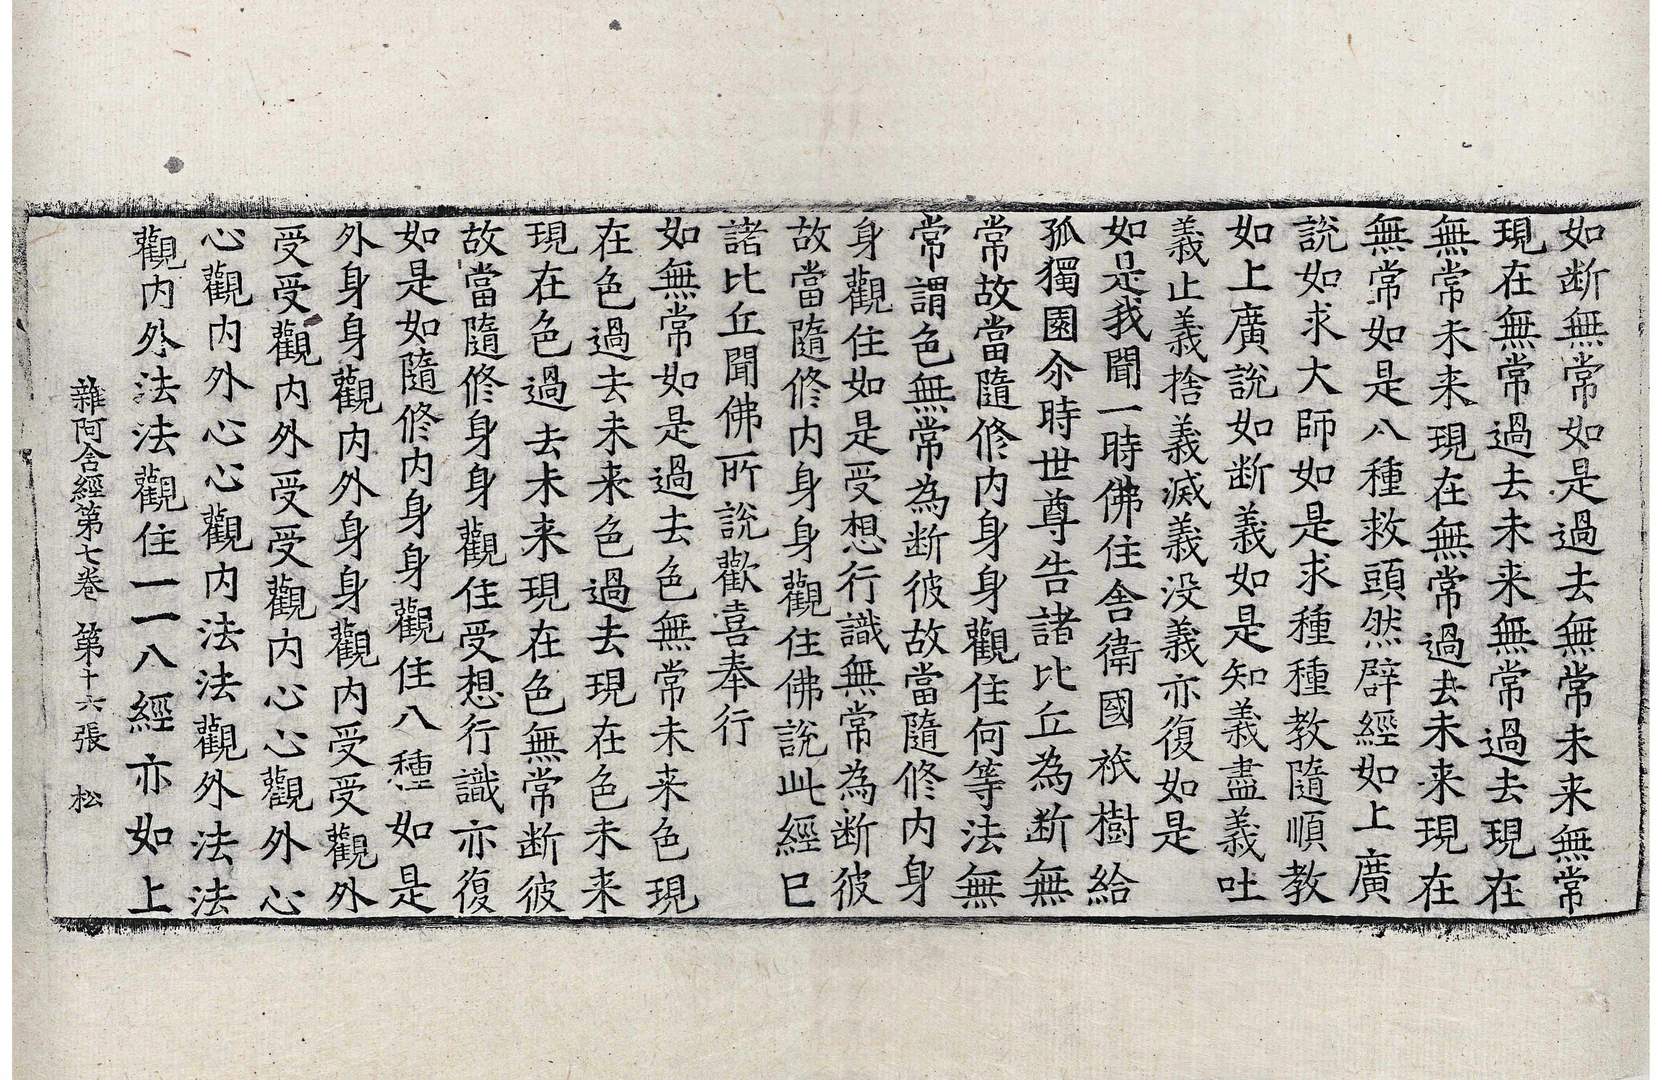 如断無常如是過去無常未来無常
現在無常過去未来無常過去現在
無常未来現在無常過去未来現在
無常如是八種救頭然辟經如上廣
說如求大師如是求種種教隨順教
如上廣說如断義如是知義盡義吐
義止義捨義滅義没義亦復如是
如是我聞一時佛住舍衛國祇樹給
孤獨園尒時世尊告諸比丘為断無
常故當隨修内身身觀住何等法無
常謂色無常為断彼故當隨修内身
身觀住如是受想行識無常為断彼
故當隨修内身身觀住佛說此經已
諸比丘聞佛所說歡喜奉行
如無常如是過去色無常未来色現
在色過去未来色過去現在色未来
現在色過去未来現在色無常断彼
故當隨修身身觀住受想行識亦復
如是如隨修内身身觀住八種如是
外身身觀内外身身觀内受受觀外
受受觀内外受受觀内心心觀外心
心觀内外心心觀内法法觀外法法
觀内外法法觀住一一八經亦如上
雜阿含經第七卷　第十六張　松